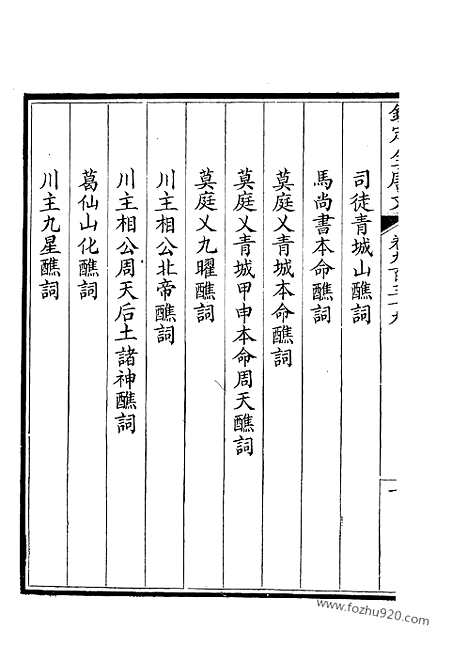 欽定全唐文 卷九百三十九 一
司徒青城山醮詞
馬尚書本命醮詞
莫庭乂青城本命醮詞
莫庭乂青城甲申本命周天醮詞
莫庭乂九曜醮詞
川主相公北帝醮詞
川主相公周天后土諸神醮詞
葛仙山化醮詞
川主九星醮詞
www.fozhu920.com